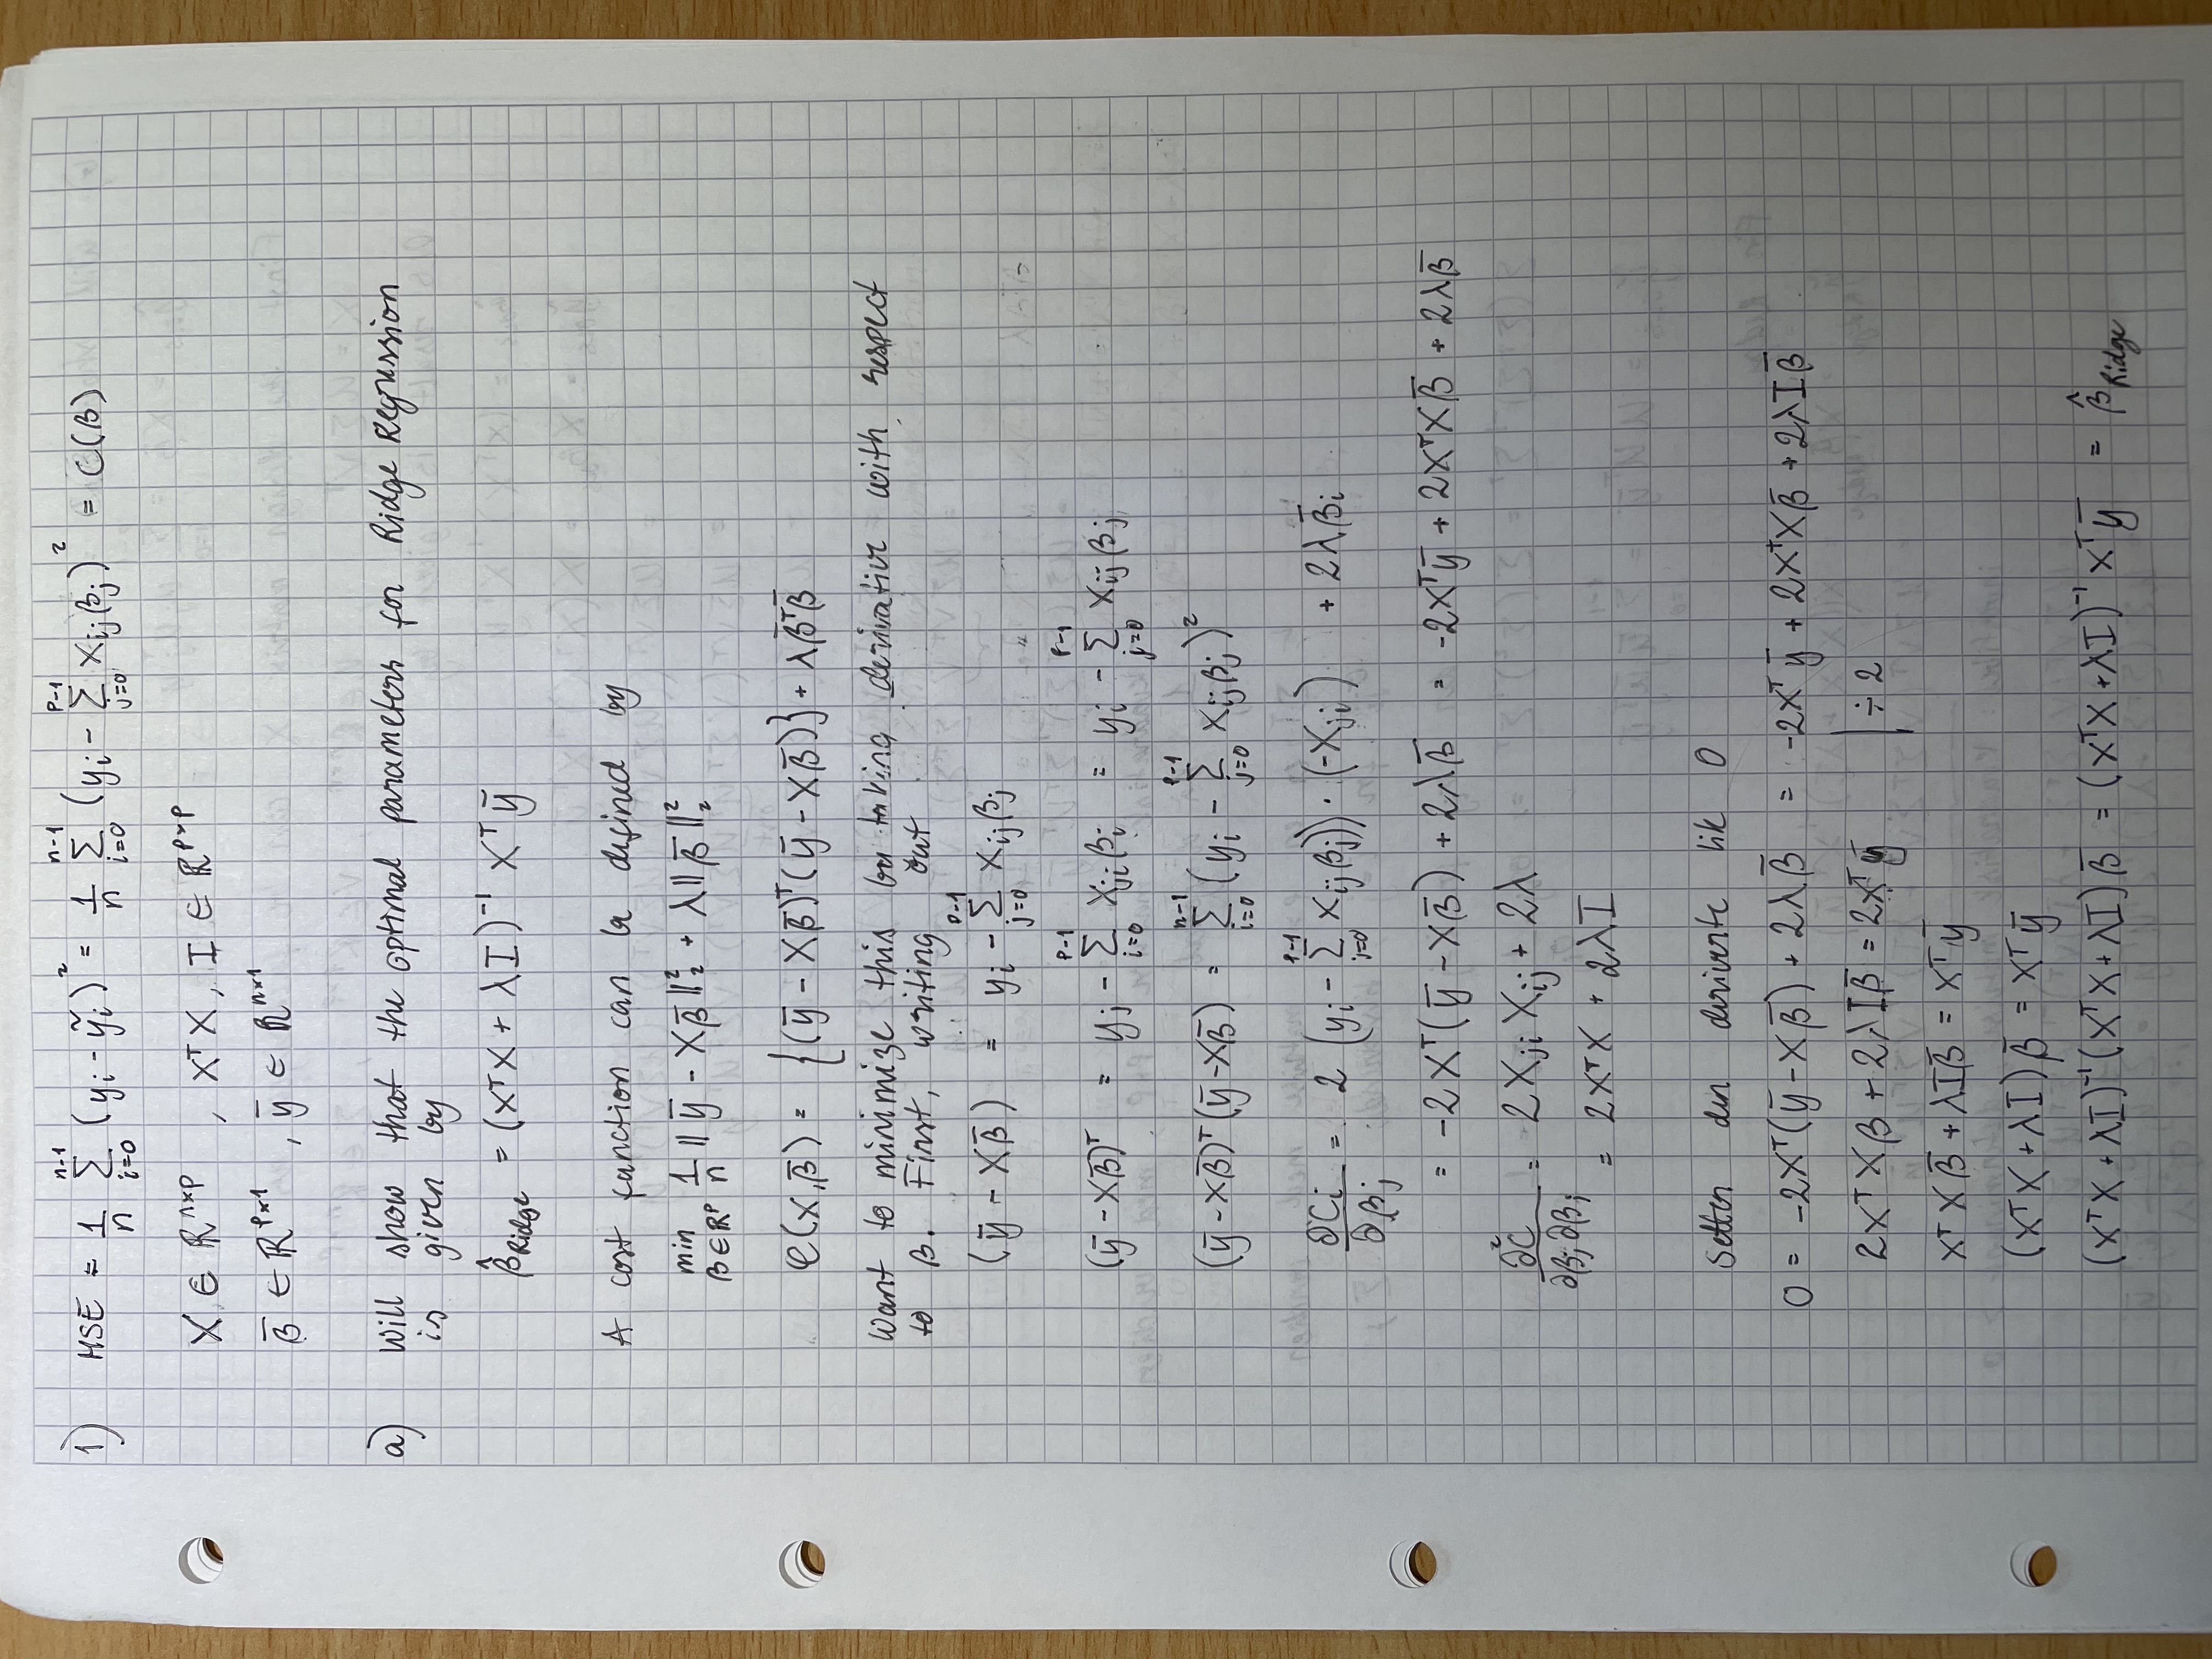 1) MSE = 1/n Σ_{i=0}^{n-1} (y_i - ỹ_i)² = 1/n Σ_{i=0}^{n-1} (y_i - Σ_{j=0}^{p-1} X_{ij} β_j)² = C(β)
X ∈ ℝ^{n×p} , XᵀX, I ∈ ℝ^{p×p}
β̄ ∈ ℝ^{p×1} , ȳ ∈ ℝ^{n×1}
a) Will show that the optimal parameters for Ridge Regression
is given by
β̂_{Ridge} = (XᵀX + λI)⁻¹ Xᵀȳ
A cost function can be defined by
min_{β∈ℝ^p} 1/n ‖ȳ - Xβ̄‖₂² + λ‖β̄‖₂²
C(X,β̄) = {(ȳ - Xβ̄)ᵀ(ȳ - Xβ̄)} + λβ̄ᵀβ̄
Want to minimize this by taking derivative with respect
to β. First, writing out
(ȳ - Xβ̄) = y_i - Σ_{j=0}^{p-1} X_{ij} β_j
(ȳ - Xβ̄)ᵀ = y_j - Σ_{i=0}^{p-1} X_{ji} β_i = y_i - Σ_{j=0}^{p-1} X_{ij} β_j
(ȳ - Xβ̄)ᵀ(ȳ - Xβ̄) = Σ_{i=0}^{n-1} (y_i - Σ_{j=0}^{p-1} X_{ij} β_j)²
∂C_i/∂β_j = 2 (y_i - Σ_{j=0}^{p-1} X_{ij} β_j)) · (-X_{ji}) + 2λβ̄_i
= -2Xᵀ(ȳ - Xβ̄) + 2λβ̄ = -2Xᵀȳ + 2XᵀXβ̄ + 2λβ̄
∂²C/∂β_j ∂β_j = 2X_{ji} X_{ij} + 2λ
= 2XᵀX + 2λI
Setter den deriverte lik 0
0 = -2Xᵀ(ȳ - Xβ̄) + 2λβ̄ = -2Xᵀȳ + 2XᵀXβ̄ + 2λIβ̄
2XᵀXβ + 2λIβ̄ = 2Xᵀȳ | ÷ 2
XᵀXβ̄ + λIβ̄ = Xᵀȳ
(XᵀX + λI)β̄ = Xᵀȳ
(XᵀX + λI)⁻¹(XᵀX + λI)β̄ = (XᵀX + λI)⁻¹Xᵀȳ = β̂_{Ridge}